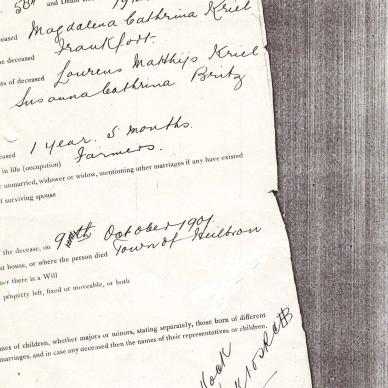 and Death
eceased Magdalena Cathrina Kriel
he deceased Frankfort.
nts of deceased Lourens Matthijs Kriel
Susanna Cathrina Britz
ceased 1 year. 5 months.
in life (occupation) Farmers.
r unmarried, widower or widow, mentioning other marriages if any have existed
surviving spouse
the decease, on 9th October 1901.
at house, or where the person died Town of Heilbron
her there is a Will
property left, fixed or moveable, or both
mes of children, whether majors or minors, stating separately, those born of different
marriages, and in case any deceased then the names of their representatives or children.